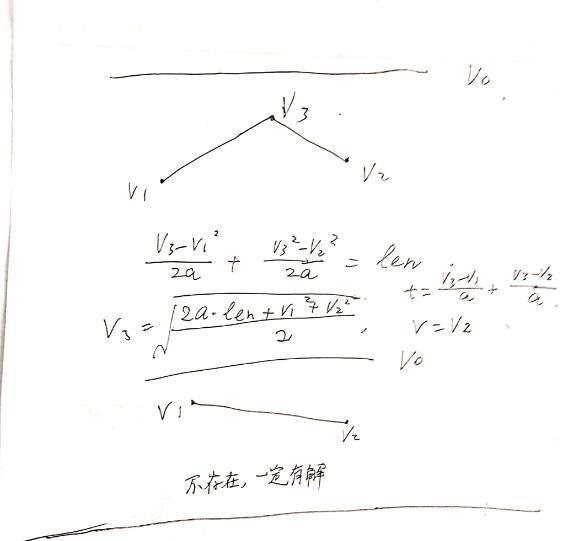 V0
V3
V1
V2
\frac{V_3-V_1^2}{2a} + \frac{V_3^2-V_2^2}{2a} = len
t=\frac{V_3-V_1}{a}+\frac{V_3-V_2}{a}
V_3=\sqrt{\frac{2a·len+V_1^2+V_2^2}{2}}, V=V_2
V0
V1
V2
不存在,一定有解